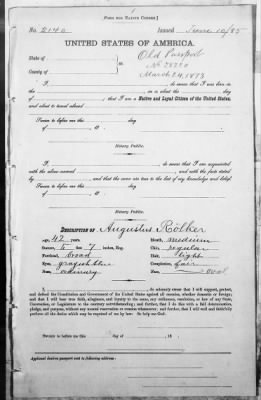 [FORM FOR NATIVE CITIZEN.]
No. 2140 Issued June 10/85
UNITED STATES OF AMERICA.
Old Passport
State of
No 28220
County of
March 24, 1873
I, do swear that I was born in the
on or about the day
of that I am a Native and Legal Citizen of the United States,
and about to travel abroad
Sworn to before me this day
of
Notary Public.
I, do swear that I am acquainted
with the above named and with the facts stated
by and that the same are true to the best of my knowledge and belief.
Sworn to before me this day
of
Notary Public.
DESCRIPTION OF Augustus Rölker
Age, 42 years. Mouth, medium
Stature, 5 feet 7 inches, Eng. Chin, regular
Forehead, broad Hair, light
Eyes, grayish blue Complexion, fair
Nose, ordinary Face, oval
I, do solemnly swear that I will support, protect,
and defend the Constitution and Government of the United States against all enemies, whether domestic or foreign;
and that I will bear true faith, allegiance, and loyalty to the same, any ordinance, resolution, or law of any State,
Convention, or Legislature to the contrary notwithstanding; and further, that I do this with a full determination,
pledge, and purpose, without any mental reservation or evasion whatsoever; and further, that I will well and faithfully
perform all the duties which may be required of me by law: So help me God.
Sworn to before me this day of 18
Applicant desires passport sent to following address: